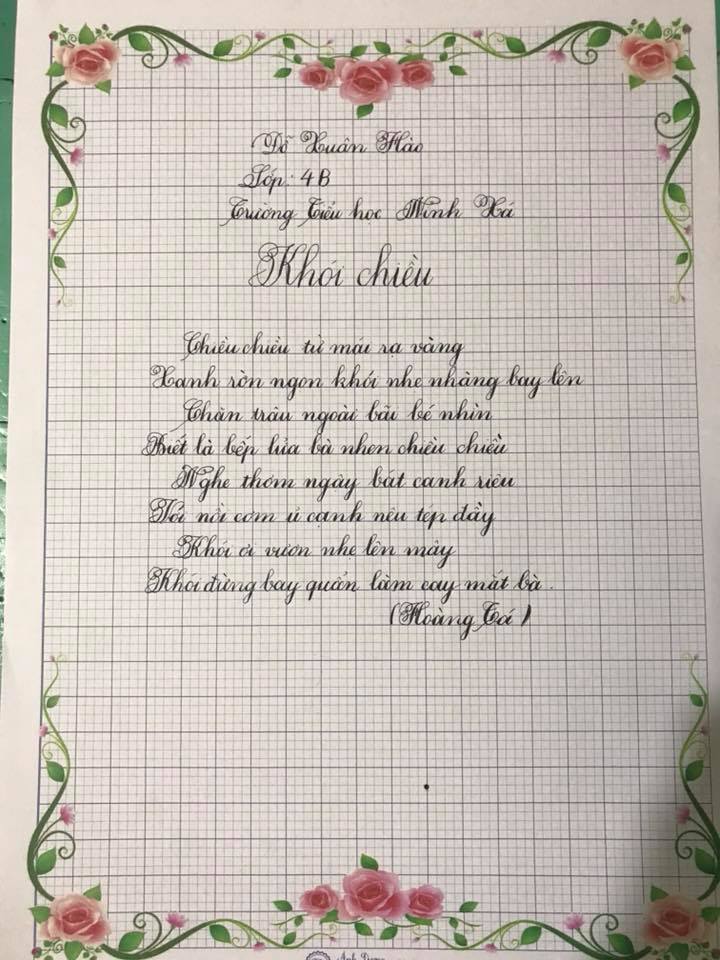 Đỗ Xuân Hào
Lớp: 4B
Trường Tiểu học Minh Xá
Khói chiều
Chiều chiều từ mái rạ vàng
Xanh rờn ngọn khói nhẹ nhàng bay lên
Chăn trâu ngoài bãi bé nhìn
Biết là bếp lửa bà nhen chiều chiều
Nghe thơm ngậy bát canh riêu
Với nồi cơm ủ cạnh nêu tép đầy
Khói ơi vươn nhẹ lên mây
Khói đừng bay quẩn làm cay mắt bà.
(Hoàng Tá)
Ánh Dương